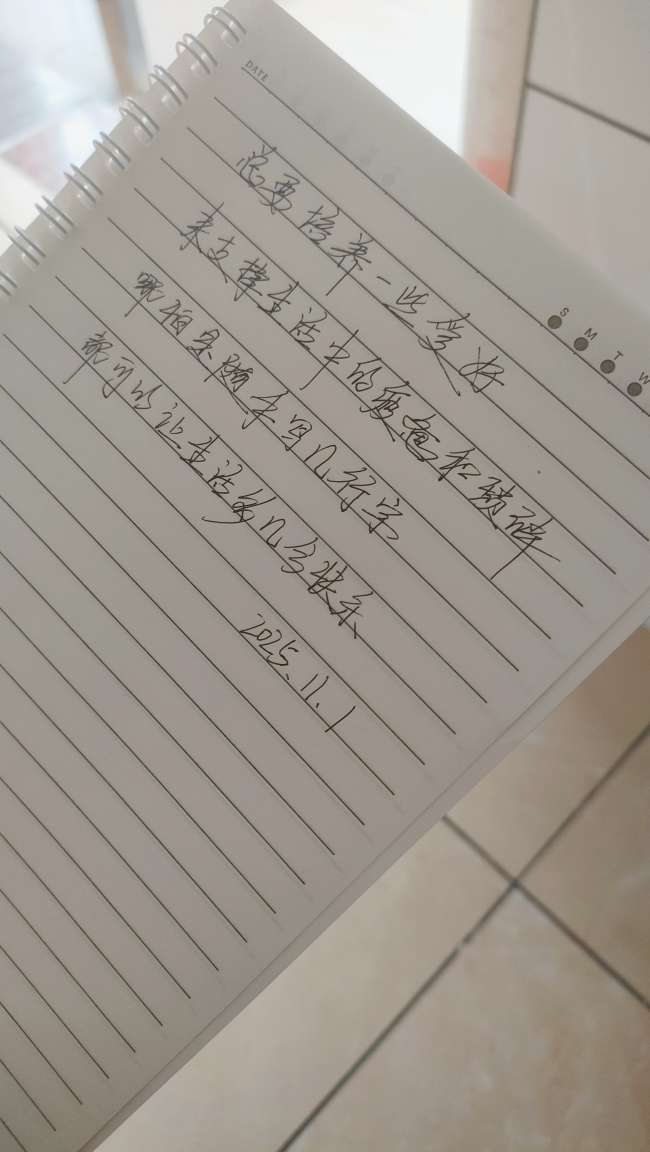 DATE
S M T W
总要培养一些爱好
来支撑生活中的疲惫和琐碎
哪怕是随手写几行字
都可以让生活多几分快乐
2025.11.1